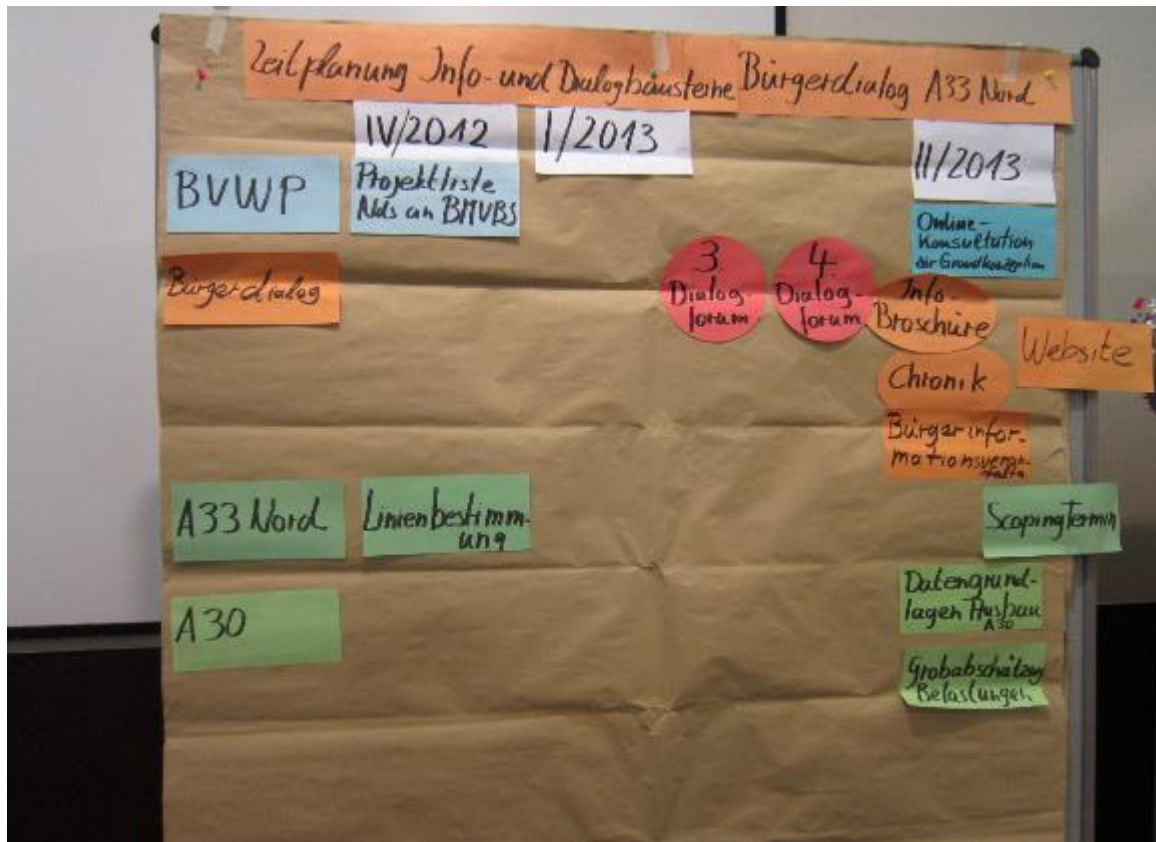 Zeitplanung Info- und Dialogbausteine Bürgerdialog A33 Nord
IV/2012
I/2013
II/2013
BVWP
Projektliste
Nds an BMVBS
Online-
Konsultation
zur Grundkonzeption
Bürgerdialog
3
Dialog-
forum
4
Dialog-
forum
Info-
Broschüre
Website
Chronik
Bürgerinfor-
mationsveran-
A33 Nord
Linienbestimm-
ung
Scoping Termin
A30
Datengrund-
lagen Ausbau
A30
Grobabschätzung
Belastungen